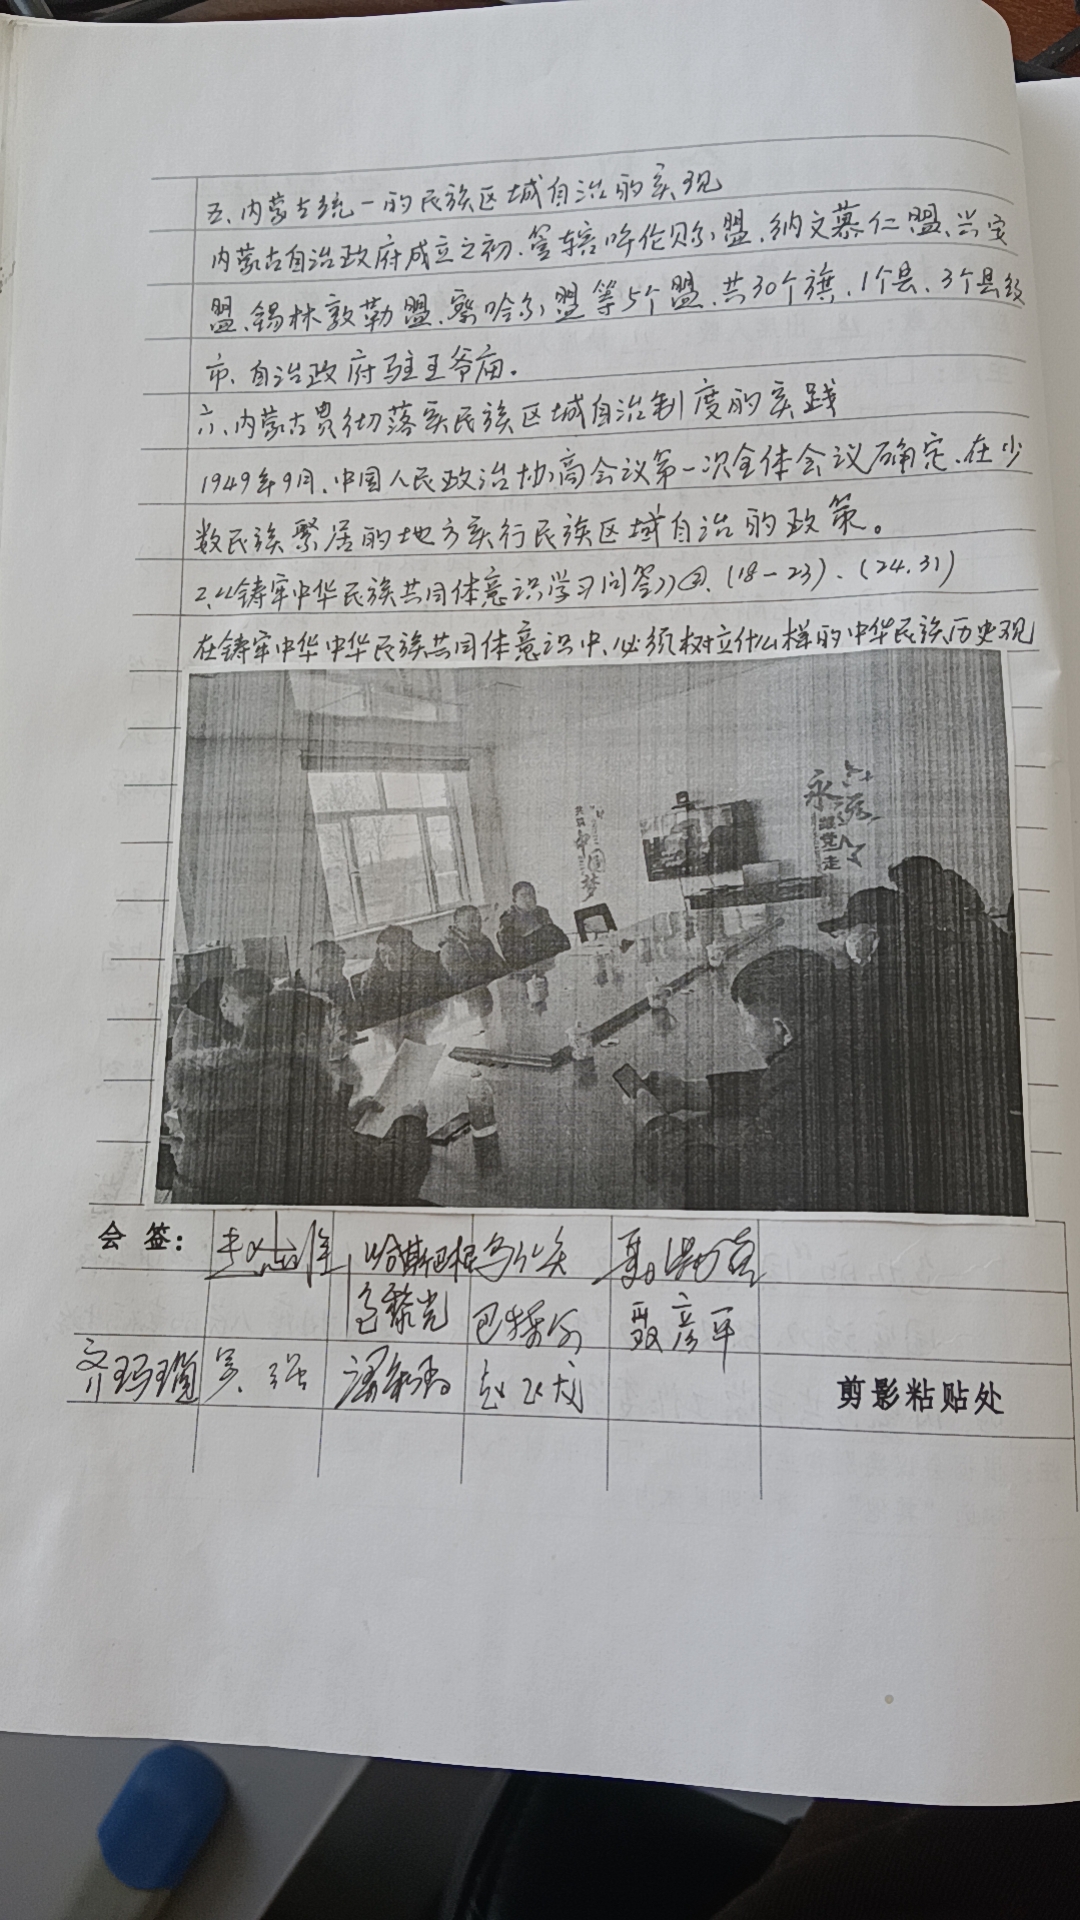 五、内蒙古统一的民族区域自治的实现
内蒙古自治政府成立之初、管辖呼伦贝尔盟、纳文慕仁盟、兴安
盟、锡林敦勒盟、察哈尔盟等5个盟、共30个旗、1个县、3个县级
市、自治政府驻王爷庙。
六、内蒙古贯彻落实民族区域自治制度的实践
1949年9月、中国人民政治协商会议第一次全体会议确定、在少
数民族聚居的地方实行民族区域自治的政策。
2、《铸牢中华民族共同体意识学习问答》②、(18-23)、(24.31)
在铸牢中华中华民族共同体意识中、必须树立什么样的中华民族历史观
中国梦
永远跟党走
会签:
哈斯巴根
聂彦平
吴强
赵飞龙
剪影粘贴处